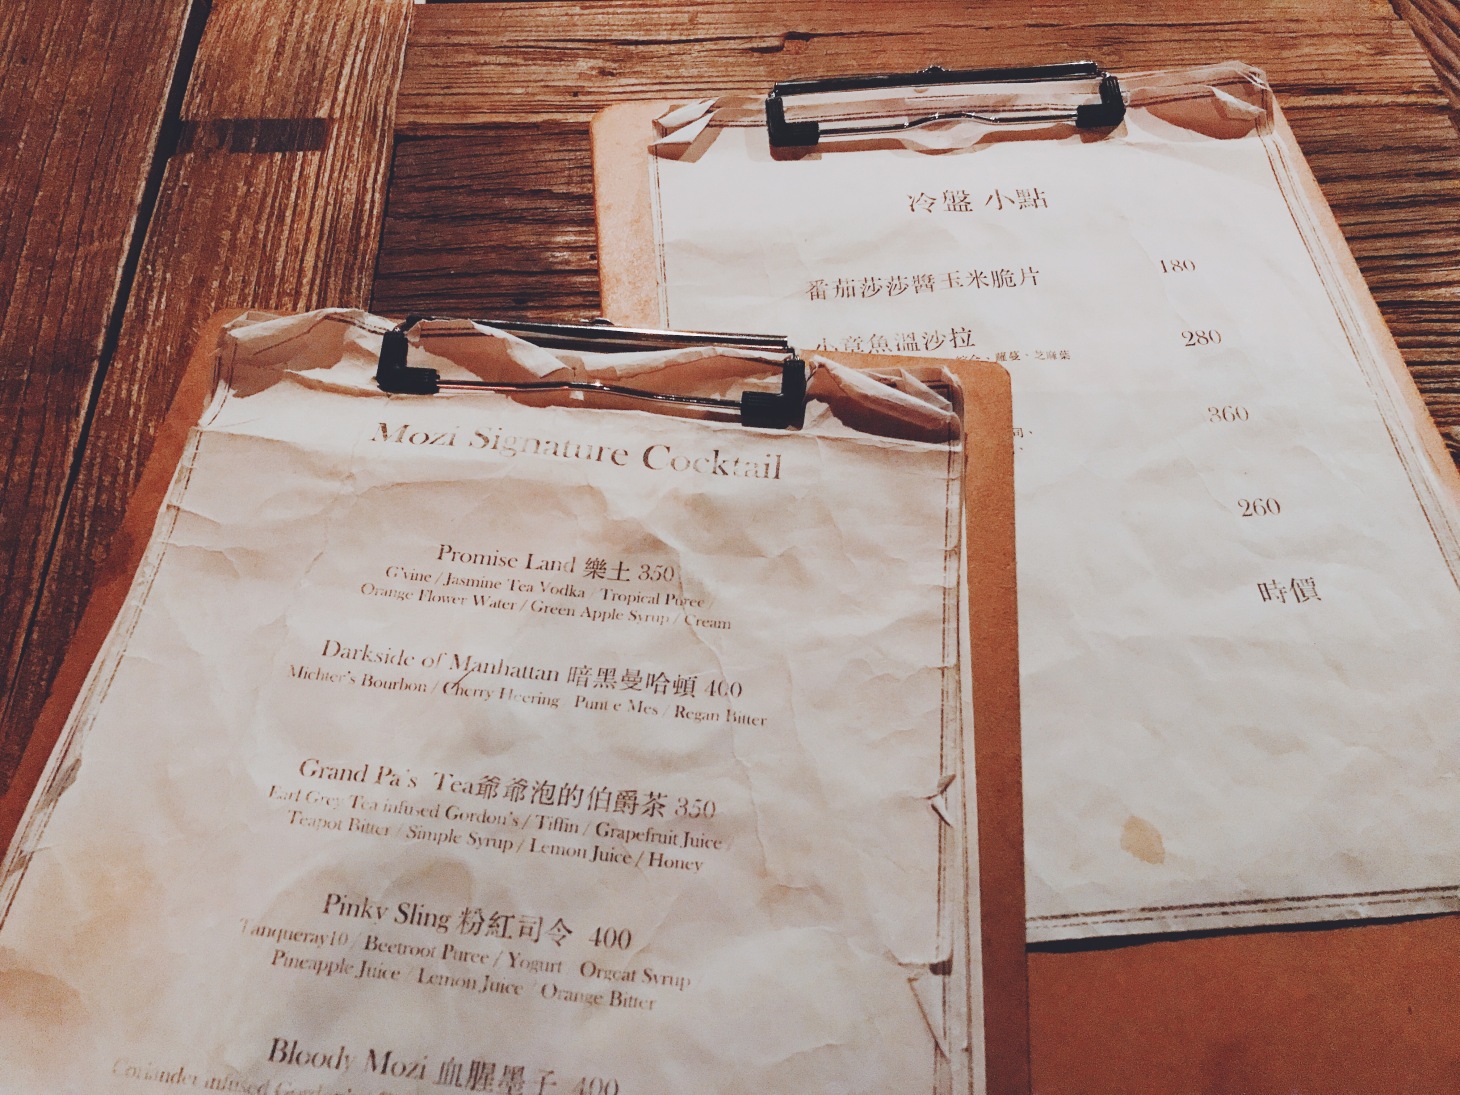 Mozi Signature Cocktail
Promise Land 樂土 350
G'vine / Jasmine Tea Vodka / Tropical Puree /
Orange Flower Water / Green Apple Syrup / Cream
Darkside of Manhattan 暗黑曼哈頓 400
Michter's Bourbon / Cherry Heering Punt e Mes / Regan Bitter
Grand Pa's Tea爺爺泡的伯爵茶 350
Earl Grey Tea infused Gordon's / Tiffin / Grapefruit Juice /
Teapot Bitter / Simple Syrup / Lemon Juice / Honey
Pinky Sling 粉紅司令 400
Tanqueray10 / Beetroot Puree / Yogurt Orgeat Syrup
Pineapple Juice / Lemon Juice / Orange Bitter
Bloody Mozi 血腥墨子 400
Coriander infused
冷盤 小點
番茄莎莎醬玉米脆片 180
小章魚溫沙拉 280
蘿蔓、芝麻葉
360
260
時價